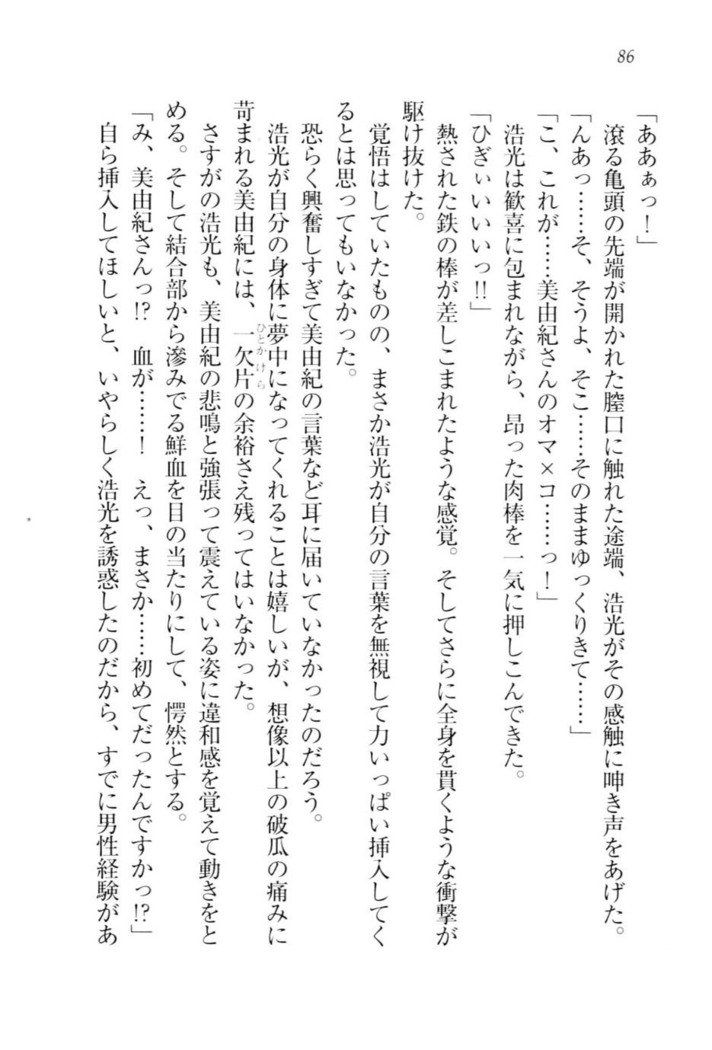 86
「ああぁっ！」
　滾る亀頭の先端が開かれた膣口に触れた途端、浩光がその感触に呻き声をあげた。
「んあっ……そ、そうよ、そこ……そのままゆっくりきて……」
「こ、これが……美由紀さんのオマ×コ……っ！」
　浩光は歓喜に包まれながら、昂った肉棒を一気に押しこんできた。
「ひぎぃいいいっ!!」
　熱された鉄の棒が差しこまれたような感覚。そしてさらに全身を貫くような衝撃が
駆け抜けた。
　覚悟はしていたものの、まさか浩光が自分の言葉を無視して力いっぱい挿入してく
るとは思ってもいなかった。
　恐らく興奮しすぎて美由紀の言葉など耳に届いていなかったのだろう。
　浩光が自分の身体に夢中になってくれることは嬉しいが、想像以上の破瓜の痛みに
苛まれる美由紀には、一欠片の余裕さえ残ってはいなかった。
ひとかけら
　さすがの浩光も、美由紀の悲鳴と強張って震えている姿に違和感を覚えて動きをと
める。そして結合部から滲みでる鮮血を目の当たりにして、愕然とする。
「み、美由紀さんっ!?　血が……！　えっ、まさか……初めてだったんですかっ!?」
　自ら挿入してほしいと、いやらしく浩光を誘惑したのだから、すでに男性経験があ